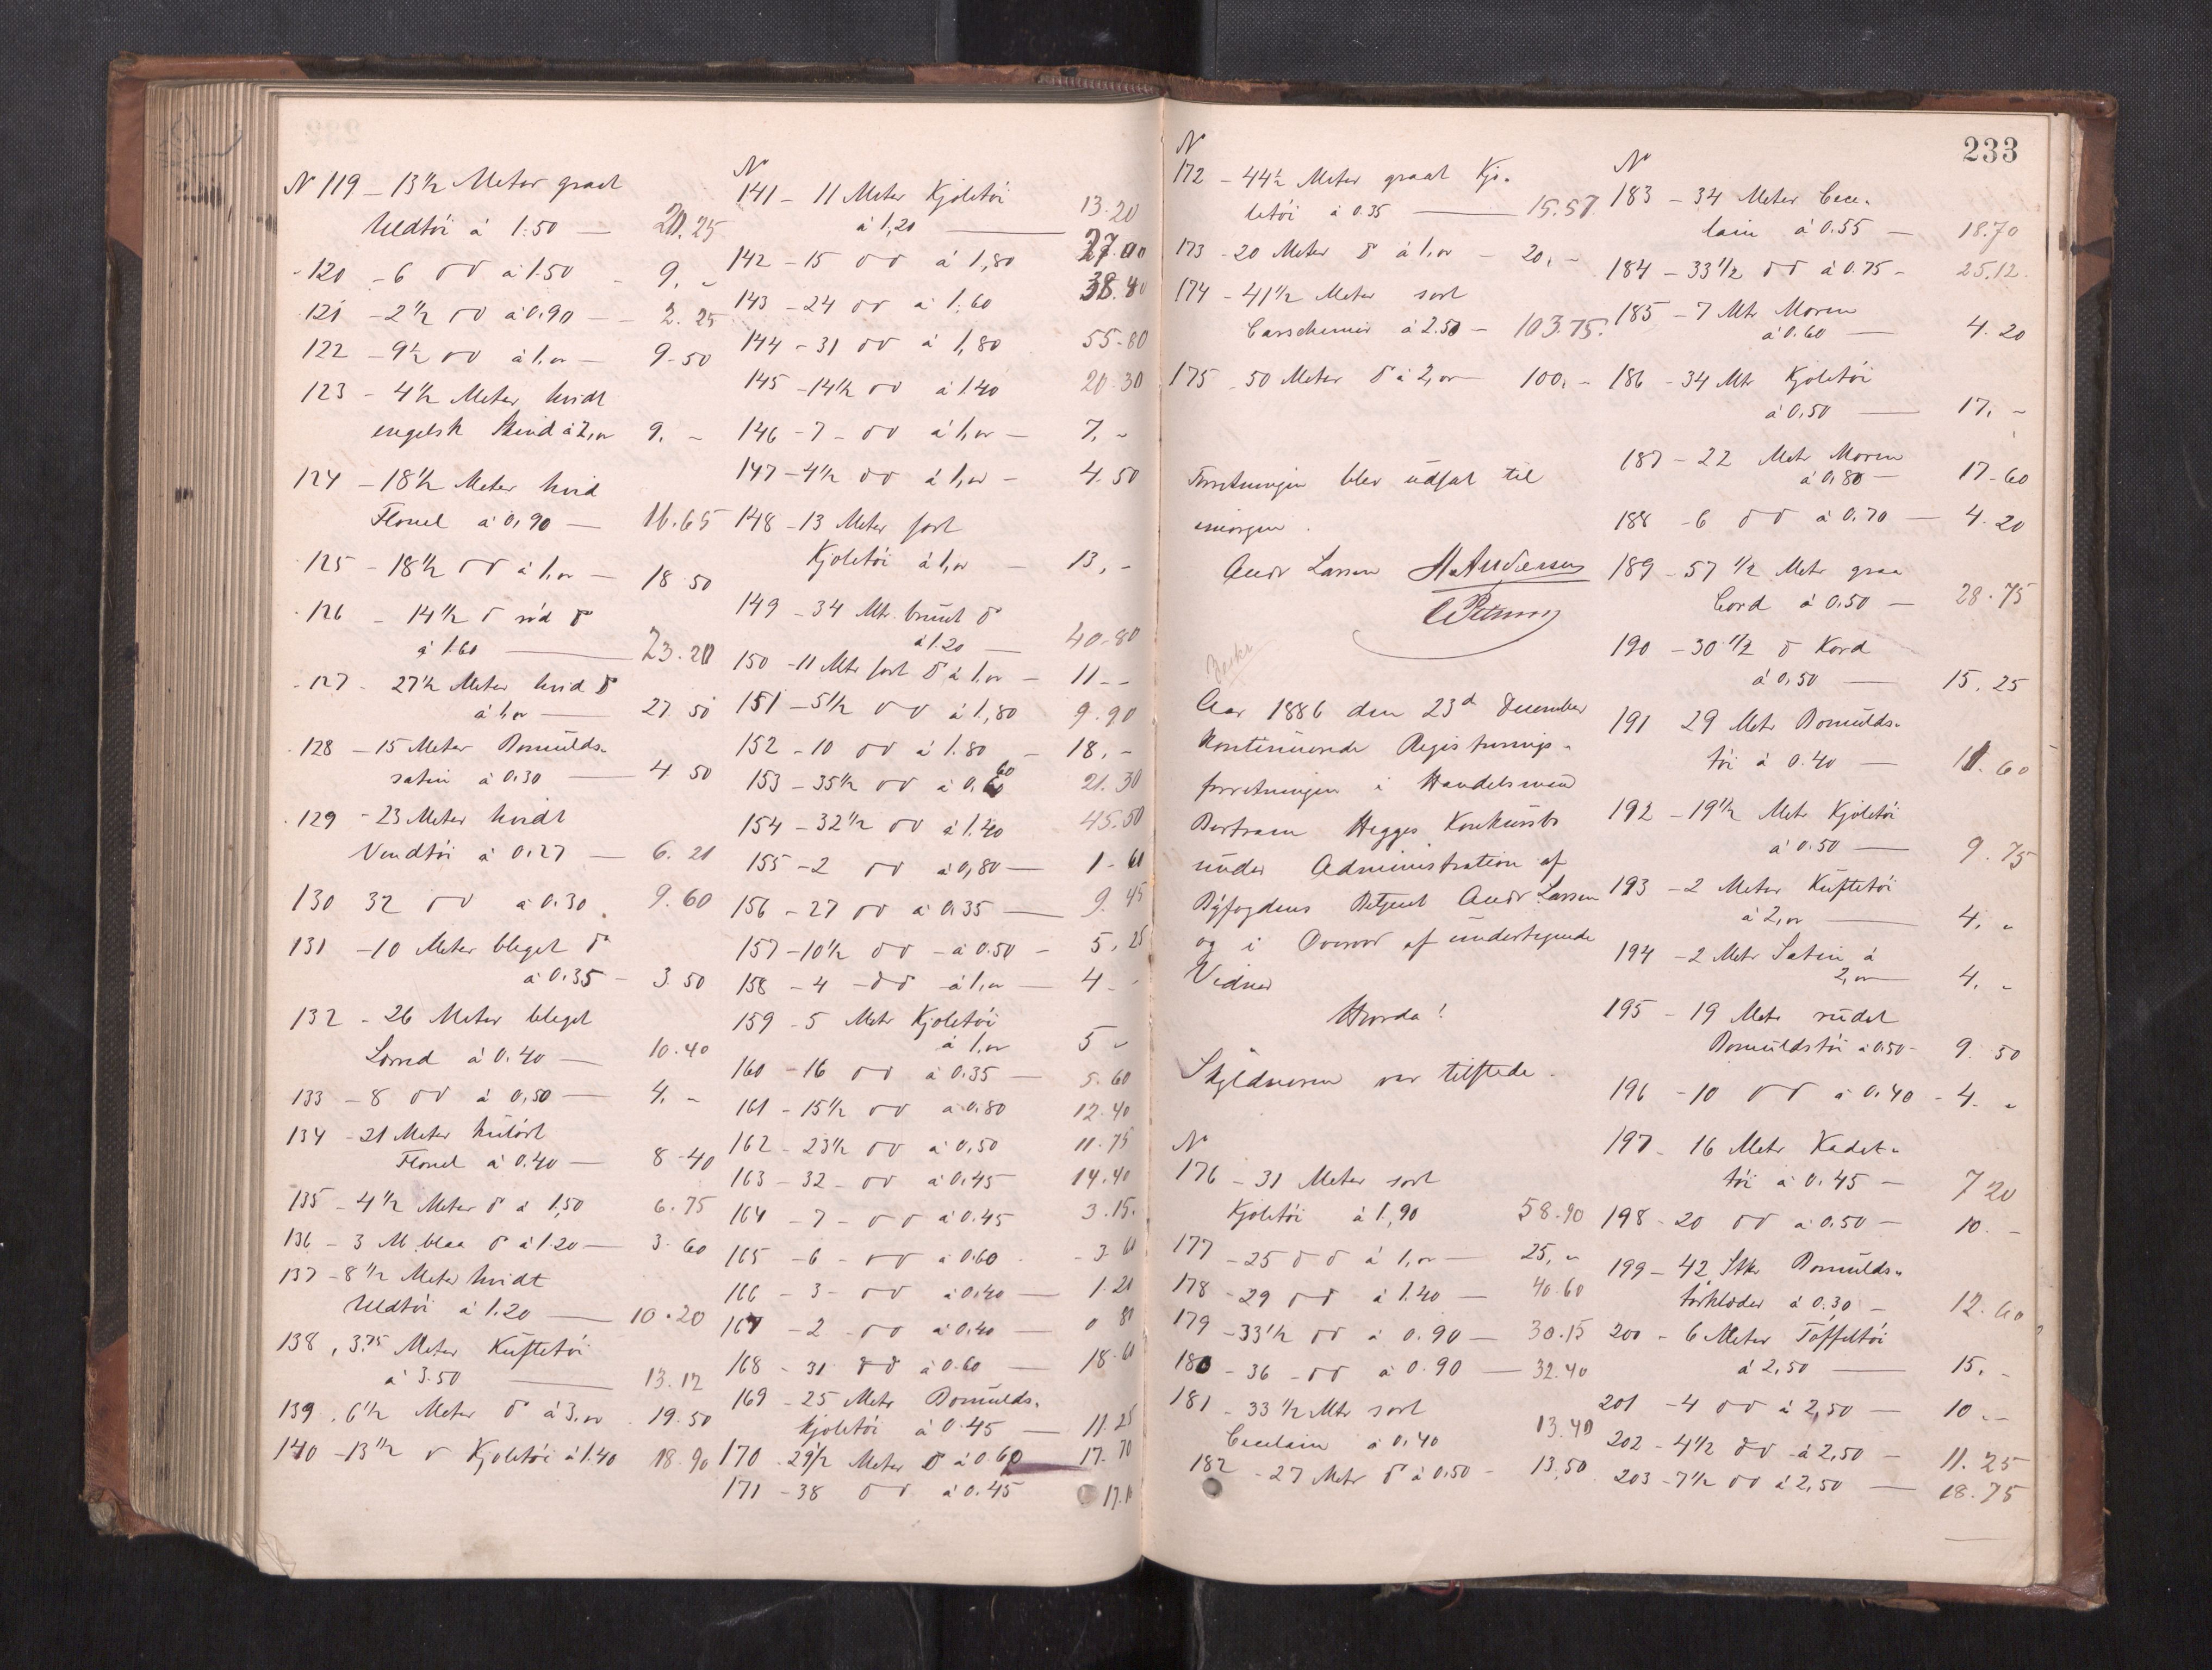 N 119 - 13½ Meter graat
Uldtöi á 1.50 — 20.25
120 - 6 do do á 1.50 - 9. "
121 - 2½ do do á 0.90 - - 2.25
122 - 9½ do do á 1,00 - 9.50
123 - 4½ Meter hvidt
engelsk Skind á 2,00 9. "
124 - 18½ Meter hvid
Flonel á 0,90 — 16.65
125 - 18½ do do á 1,00 - 18.50
126 - 14½ do röd do
á 1.60 — 23.20
127 - 27½ Meter hvid do
á 1,00 — 27.50
128 - 15 Meter Bomulds-
satin á 0.30 — 4.50
129 - 23 Meter hvidt
Vendtöi á 0.27 — 6.21
130 32 do do á 0.30 . 9.60
131 - 10 Meter bleget do
á 0.35 - 3.50
132 - 26 Meter bleget
Lærred á 0.40 — 10.40
133 - 8 do do á 0,50 — 4. "
134 - 21 Meter kulört
Flonel á 0.40 — 8.40
135 - 4½ Meter do á 1,50 6.75
136 - 3 M blaa do á 1.20 — 3.60
137 - 8½ Meter hvidt
Uldtöi á 1.20 — 10.20
138 , 3.75 Meter Küftetöi
á 3.50 — 13.12
139 . 6½ Meter do á 3,00 . 19.50
140 - 13½ do Kjoletöi á 1.40 18.90
N
141 - 11 Meter Kjoletöi
á 1,20 — 13.20
142 - 15 do do á 1,80 27.00
143 - 24 do do á 1.60 38.40
144 - 31 do do á 1,80 55.80
145 - 14½ do do á 1.40 20.30
146 - 7 - do do á 1,00 — 7. "
147 - 4½ do do á 1,00 - 4.50
148 - 13 Meter sort
Kjoletöi á 1,00 - 13, -
149 - 34 Mtr. brunt do
á 1.20 — 40.80
150 - 11 Mtr sort do á 1,00 - 11 - -
151 - 5½ do do á 1,80 9.90
152 - 10 do do á 1.80 - 18, -
153 - 35½ do do á 0.60 21.30
154 - 32½ do do á 1.40 45.50
155 - 2 do do á 0,80 — 1.60
156 - 27 do do á 0.35 — 9.45
157 - 10½ do do - á 0.50 - 5.25
158 - 4 - do do á 1,00 — 4 - -
159 - 5 Metr Kjoletöi
á 1,00 5 "
160 - 16 do do á 0.35 — 5.60
161 - 15½ do do á 0.80 12.40
162 - 23½ do do á 0,50 11.75
163 - 32 - do do á 0.45 14.40
164 - 7 - do do á 0.45 3.15.
165 - 6 - do do á 0.60 - 3.60
166 - 3 - do do á 0.40 — 1.20
167 - 2 - do do á 0.40 — 0 80
168 - 31 do do á 0.60 — 18.60
169 - 25 Metr Bomulds-
kjoletöi á 0.45 — 11.25
170 . 29½ Meter do á 0.60 17.70
171 - 38 do do á 0.45 17.1
233
N
172 - 44½ Meter graat Kjo-
letöi á 0.35 — 15.57
173 - 20 Meter do á 1,00 - 20, -
174 - 41½ Meter sort
Casschemir á 2.50 - 103.75.
175 . 50 Meter do á 2,00 — 100. -
Forretningen blev udsat til
imorgen.
Andr Larsen
Aar 1886 den 23d December
kontinuerede Registrerings-
forretningen i Handelsmand
Bertram Hegges Konkursbo
under Administration af
Byfogdens Betjent Andr Larsen
og i Overvær af undertegnede
Vidner
Hvorda!
Skyldneren var tilstede.
N
176 - 31 Meter sort
Kjoletöi á 1,90 58.90
177 - 25 do do á 1,00 — 25, "
178 - 29 do do á 1.40 — 40.60
179 - 33½ do do á 0.90 — 30.15
180 - 36 - do do á 0.90 — 32.40
181 - 33½ Mtr sort
Cecelain á 0,40 13.40
182 - 27 Metr do á 0.50 - 13,50
N
183 - 34 Meter Cece-
lain á 0.55 — 18.70
184 - 33½ do do á 0.75 - 25.12.
185 - 7 Mtr Moren
á 0.60 — 4.20
186 - 34 Mtr Kjoletöi
á 0,50 — 17. -
187 - 22 Metr Moren
á 0,80 — 17.60
188 - 6 do do á 0.70 — 4.20
189 - 57½ Metr graa
Cord á 0.50 — 28.75
190 - 30½ do Kord
á 0,50 — 15.25
191 29 Metr Bomulds-
töi á 0.40 — 11.60
192 - 19½ Metr Kjoletöi
á 0.50 — 9.75
193 - 2 Meter Küftetöi
á 2,00 — 4, "
194 - 2 Metr Satin á
2,00 — 4, "
195 - 19 Metr rudet
Bomuldstöi á 0.50 - 9.50
196 - 10 do do á 0.40 - 4. "
197 - 16 Metr Kadet-
töi á 0.45 — 7 20
198 - 20 do do á 0.50 — 10. -
199 - 42 Stkr Bomulds-
törklæder á 0.30 — 12.60
200 - 6 Meter Töffeltöi
á 2,50 — 15. -
201 - 4 do do á 2,50 — 10 . -
202 - 4½ do do á 2,50 — 11.25
203 - 7½ do do á 2,50 — 18.75